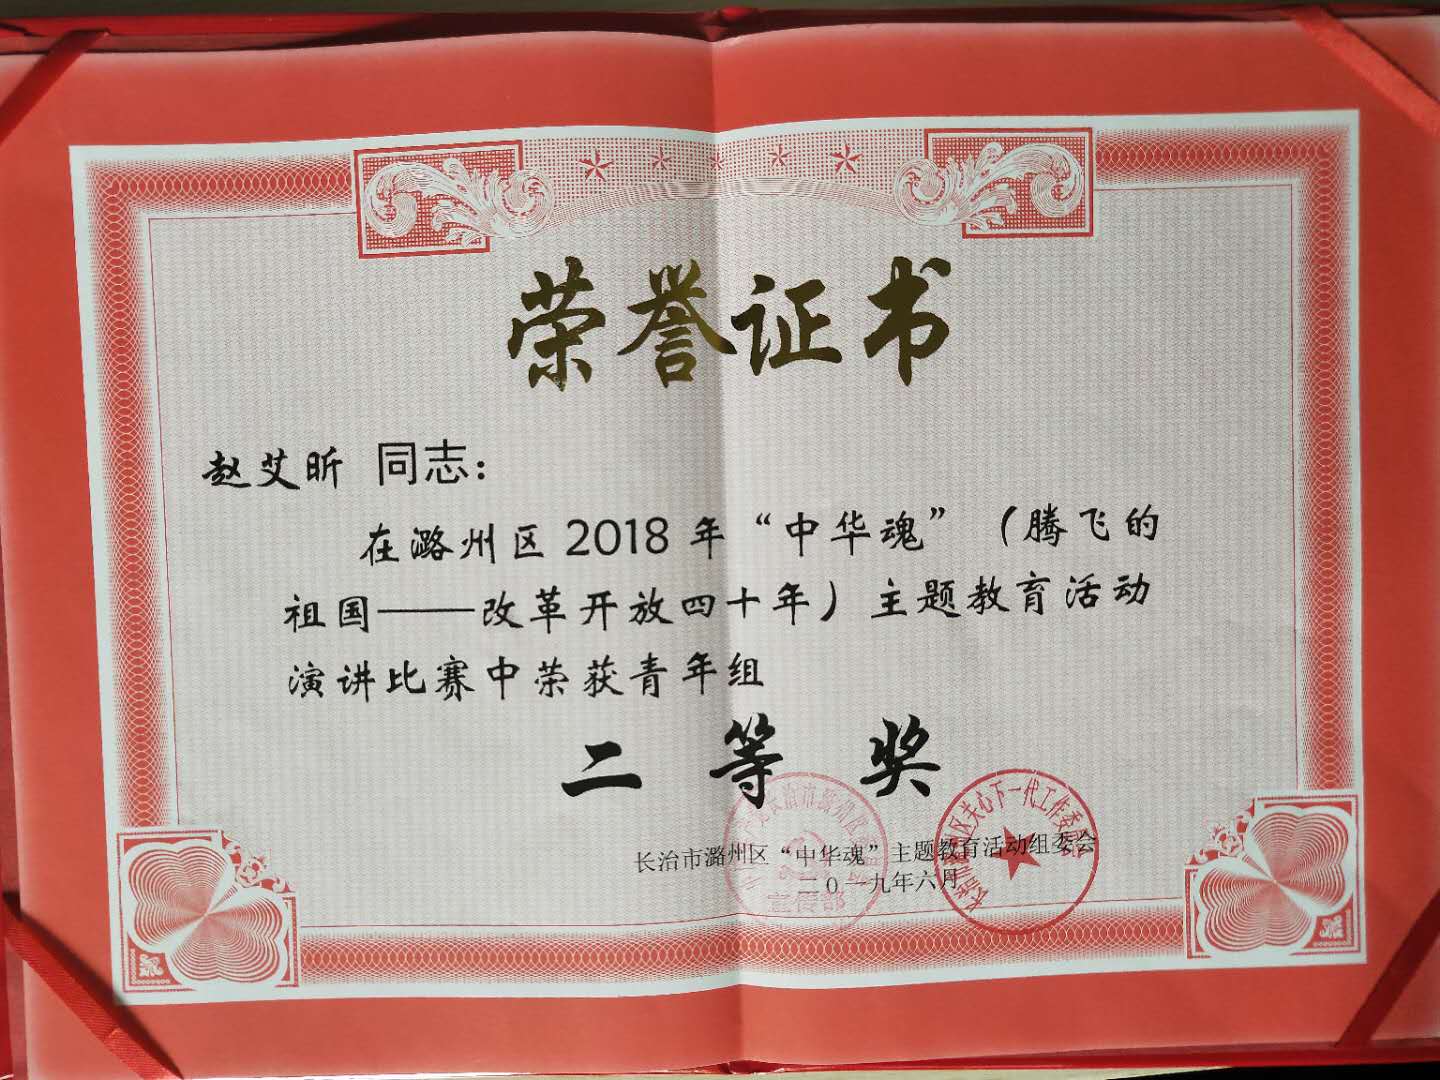 荣誉证书
赵艾昕 同志：
在潞州区2018年“中华魂”（腾飞的
祖国——改革开放四十年）主题教育活动
演讲比赛中荣获青年组
二等奖
长治市潞州区“中华魂”主题教育活动组委会
二〇一九年六月
长治市潞州区关心下一代工作委员会